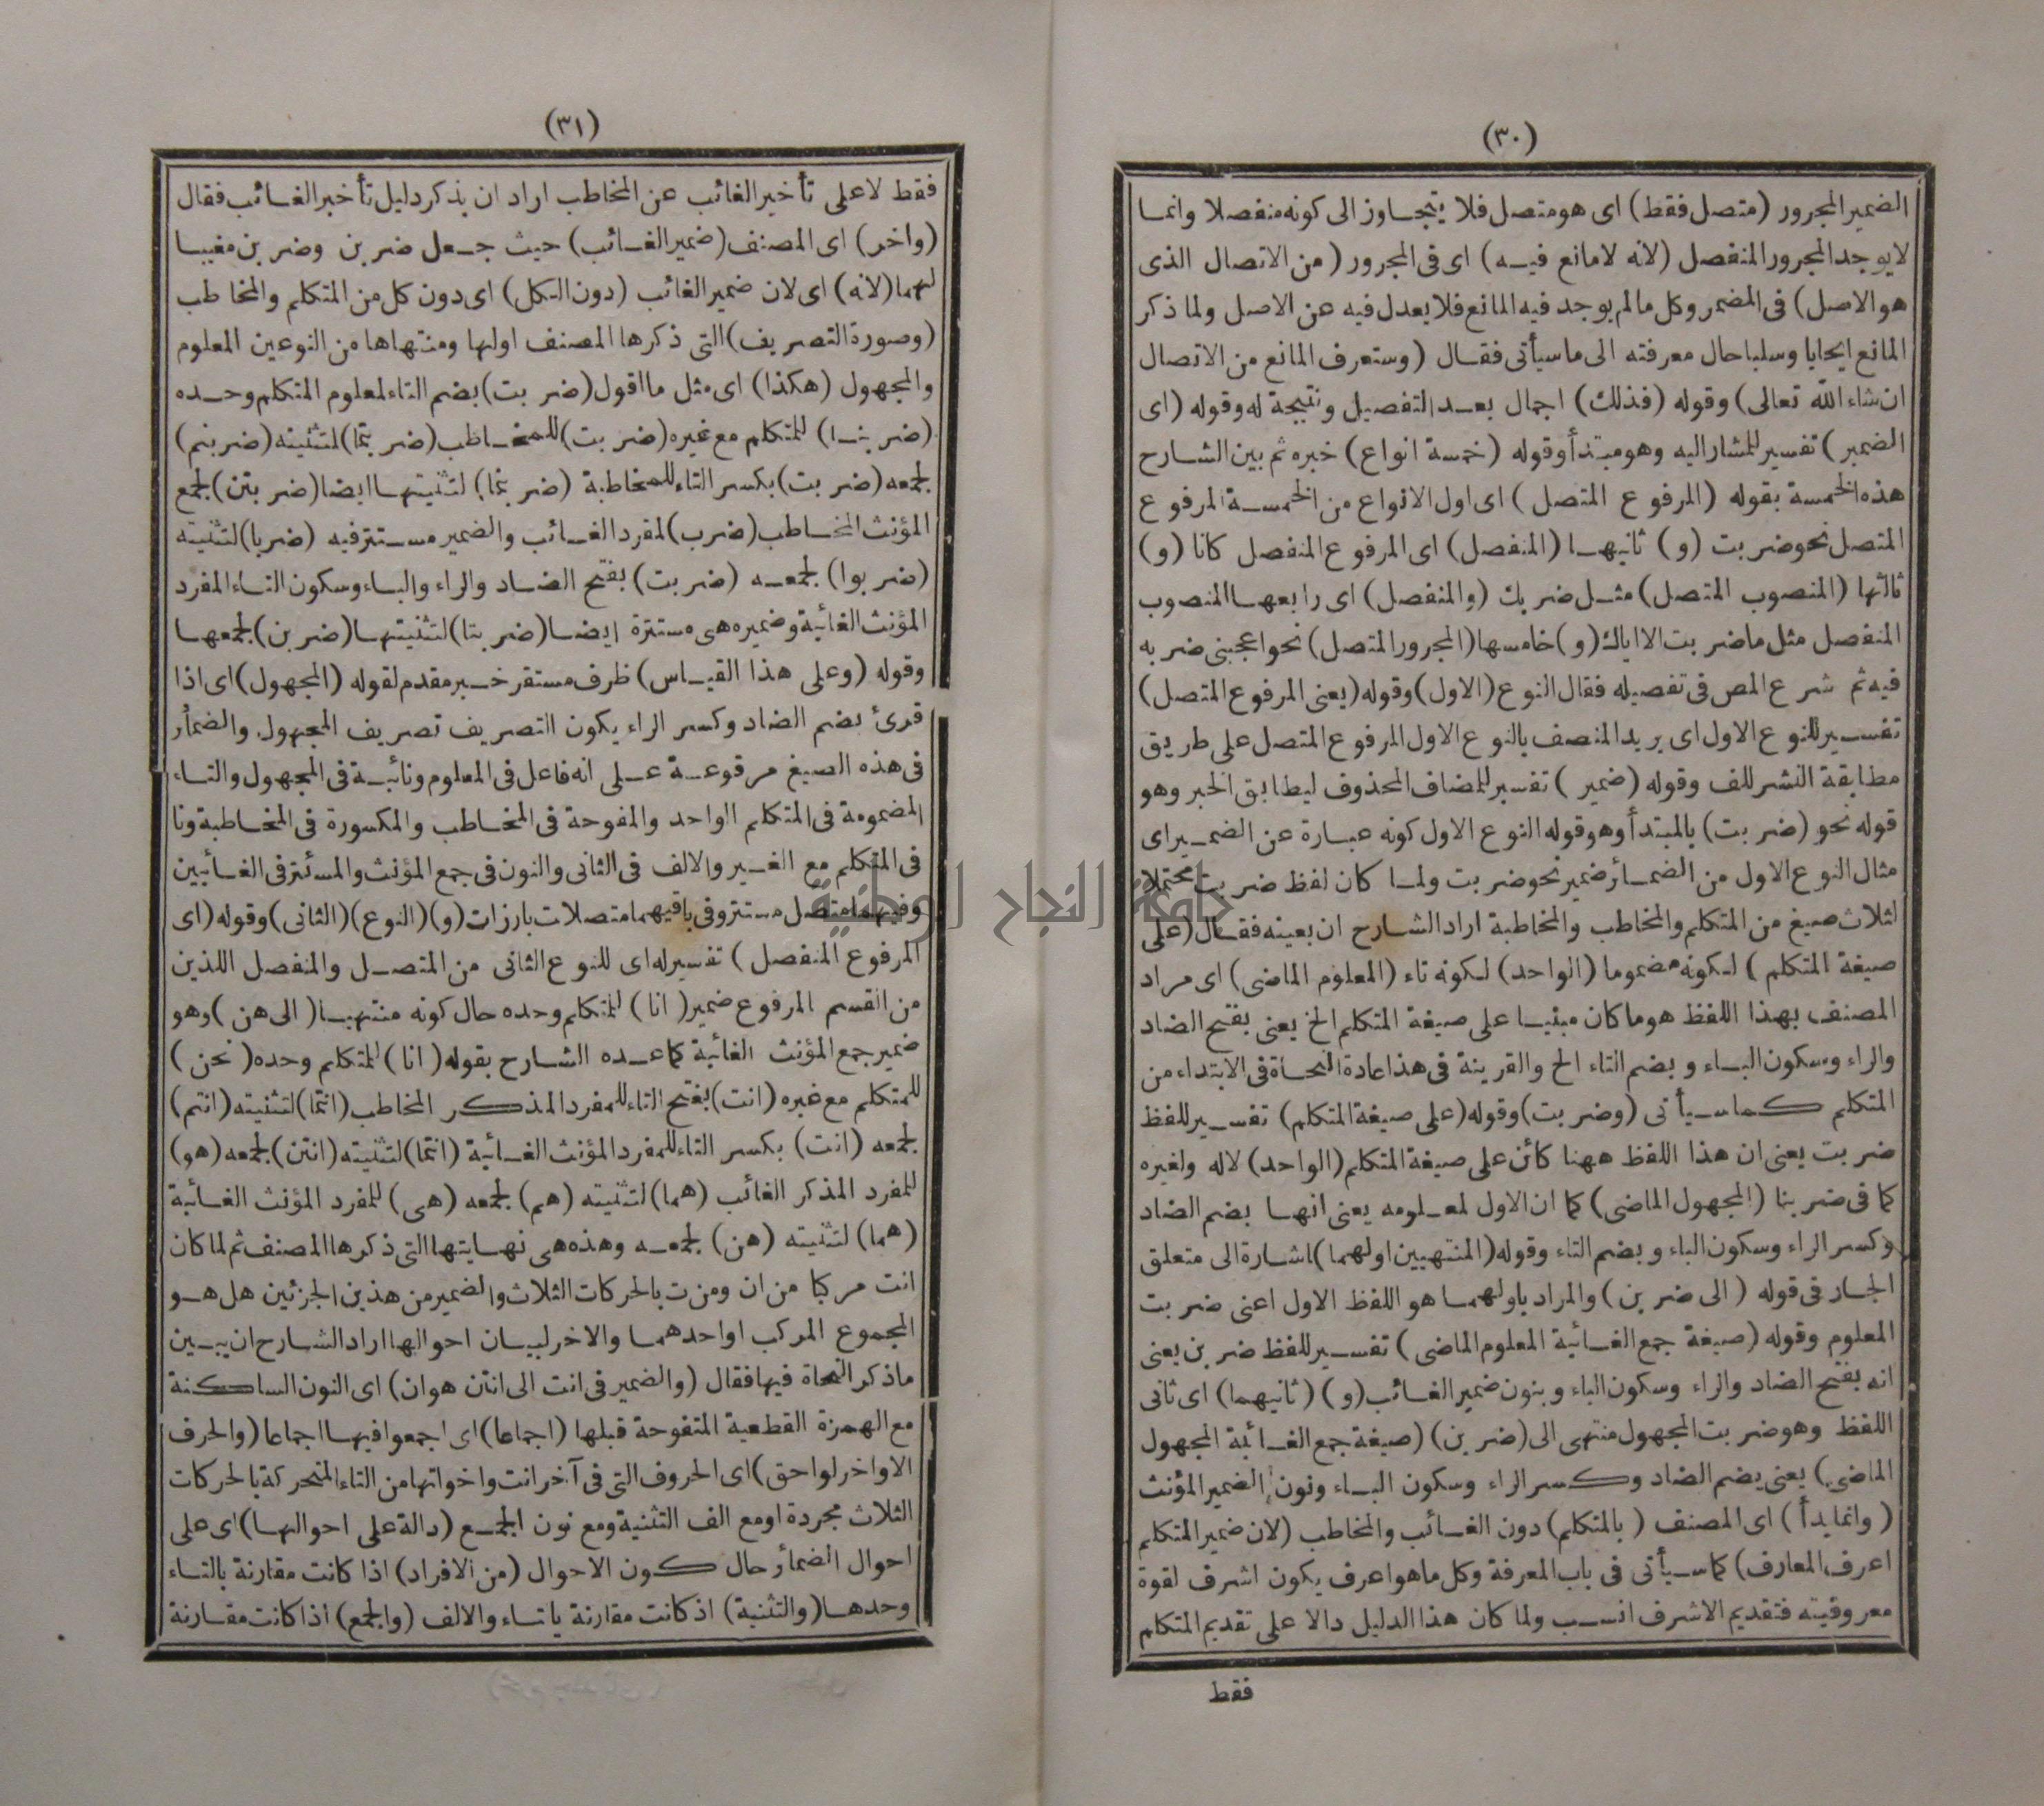 (٣٠)
الضمير المجرور (متصل فقط) اى هو متصل فلا يتجاوز الى كونه منفصلا وانما
لا يوجد المجرور المنفصل (لانه لا مانع فيه) اى فى المجرور (من الاتصال الذى
هو الاصل) فى المضمر وكل ما لم يوجد فيه المانع فلا يعدل فيه عن الاصل ولما ذكر
المانع ايجابا وسلبا حال معرفته الى ما سيأتى فقال (وستعرف المانع من الاتصال
ان شاء الله تعالى) وقوله (فذلك) اجمال بعد التفصيل ونتيجة له وقوله (اى
الضمير) تفسير للمشار اليه وهو مبتدأ وقوله (خمسة انواع) خبره ثم بين الشارح
هذه الخمسة بقوله (المرفوع المتصل) اى اول الانواع من الخمسة المرفوع
المتصل نحو ضربت (و) ثانيها (المنفصل) اى المرفوع المنفصل كانا (و)
ثالثها (المنصوب المتصل) مثل ضربك (والمنفصل) اى رابعها المنصوب
المنفصل مثل ما ضربت الا اياك (و) خامسها (المجرور المتصل) نحو اعجبنى ضربه
فيه ثم شرع المص فى تفصيله فقال النوع (الاول) وقوله (يعنى المرفوع المتصل)
تفسير للنوع الاول اى يريد المنصف بالنوع الاول المرفوع المتصل على طريق
مطابقة النشر للف وقوله (ضمير) تفسير للمضاف المحذوف ليطابق الخبر وهو
قوله نحو (ضربت) بالمبتدأ وهو قوله النوع الاول كونه عبارة عن الضمير اى
مثال النوع الاول من الضمائر ضمير نحو ضربت ولما كان لفظ ضربت محتملا
لثلاث صيغ من المتكلم والمخاطب والمخاطبة اراد الشارح ان يعينه فقال (على
صيغة المتكلم) لكونه مضموما (الواحد) لكونه تاء (المعلوم الماضى) اى مراد
المصنف بهذا اللفظ هو ما كان مبنيا على صيغة المتكلم الخ يعنى بفتح الضاد
والراء وسكون الباء وبضم التاء الخ والقرينة فى هذا عادة النحاة فى الابتداء من
المتكلم كما سيأتى (وضربت) وقوله (على صيغة المتكلم) تفسير للفظ
ضربت يعنى ان هذا اللفظ ههنا كائن على صيغة المتكلم (الواحد) لا له ولغيره
كما فى ضربنا (المجهول الماضى) كما ان الاول لمعلومه يعنى انها بضم الضاد
وكسر الراء وسكون الباء وبضم التاء وقوله (المنتهيين اولهما) اشارة الى متعلق
الجار فى قوله (الى ضربن) والمراد باولهما هو اللفظ الاول اعنى ضربت
المعلوم وقوله (صيغة جمع الغائبة المعلوم الماضى) تفسير للفظ ضربن يعنى
انه بفتح الضاد والراء وسكون الباء وبنون ضمير الغائب (و) (ثانيهما) اى ثانى
اللفظ وهو ضربت المجهول منتهى الى (ضربن) (صيغة جمع الغائبة المجهول
الماضى) يعنى بضم الضاد وكسر الراء وسكون الباء ونون الضمير المؤنث
(وانما يدأ) اى المصنف (بالمتكلم) دون الغائب والمخاطب (لان ضمير المتكلم
اعرف المعارف) كما سيأتى فى باب المعرفة وكل ما هو اعرف يكون اشرف لقوة
معروفيته فتقديم الاشرف انسب ولما كان هذا الدليل دالا على تقديم المتكلم
فقط
(٣١)
فقط لا على تأخير الغائب عن المخاطب اراد ان يذكر دليل تأخير الغائب فقال
(واخر) اى المصنف (ضمير الغائب) حيث جعل ضربن وضربن مغيبا
لهما (لانه) اى لان ضمير الغائب (دون الكل) اى دون كل من المتكلم والمخاطب
(وصورة التصريف) التى ذكرها المصنف اولها ومنتهاها من النوعين المعلوم
والمجهول (هكذا) اى مثل ما اقول (ضربت) بضم التاء لمعلوم المتكلم وحده
(ضربنا) للمتكلم مع غيره (ضربت) للمخاطب (ضربتما) لتثنيته (ضربتم)
لجمعه (ضربت) بكسر التاء للمخاطبة (ضربتما) لتثنيتها ايضا (ضربتن) لجمع
المؤنث المخاطب (ضرب) لمفرد الغائب والضمير مستتر فيه (ضربا) لتثنيته
(ضربوا) لجمعه (ضربت) بفتح الضاد والراء والباء وسكون التاء المفرد
المؤنث الغائبة وضميره هى مستترة ايضا (ضربتا) لتثنيتها (ضربن) لجمعها
وقوله (وعلى هذا القياس) ظرف مستقر خبر مقدم لقوله (المجهول) اى اذا
قرئ بضم الضاد وكسر الراء يكون التصريف تصريف المجهول والضمائر
فى هذه الصيغ مرفوعة على انه فاعل فى المعلوم ونائبة فى المجهول والتاء
المضمومة فى المتكلم الواحد والمفوحة فى المخاطب والمكسورة فى المخاطبة ونا
فى المتكلم مع الغير والالف فى الثانى والنون فى جمع المؤنث والمستتر فى الغائبين
وفيهما متصل مستتر وفى باقيهما متصلات بارزات (و) (النوع) (الثانى) وقوله (اى
المرفوع المنفصل) تفسير له اى للنوع الثانى من المتصل والمنفصل اللذين
من القسم المرفوع ضمير (انا) للمتكلم وحده حال كونه منتهيا (الى هن) وهو
ضمير جمع المؤنث الغائبة كما عده الشارح بقوله (انا) للمتكلم وحده (نحن)
للمتكلم مع غيره (انت) بفتح التاء للمفرد المذكر المخاطب (انتما) لتثنيته (انتم)
لجمعه (انت) بكسر التاء للمفرد المؤنث الغائبة (انتما) لتثنيته (انتن) لجمعه (هو)
للمفرد المذكر الغائب (هما) لتثنيته (هم) لجمعه (هى) للمفرد المؤنث الغائبة
(هما) لتثنيته (هن) لجمعه وهذه هى نهايتها التى ذكرها المصنف ثم لما كان
انت مركبا من ان ومن ت بالحركات الثلاث والضمير من هذين الجزئين هل هو
المجموع المركب او احدهما والاخر لبيان احوالها اراد الشارح ان يبين
ما ذكر النحاة فيها فقال (والضمير فى انت الى انتن هو ان) اى النون الساكنة
مع الهمزة القطعية المتفوحة قبلها (اجماعا) اى اجمعوا فيها اجماعا (والحرف
الاواخر لواحق) اى الحروف التى فى آخر انت واخواتها من التاء المتحركة بالحركات
الثلاث مجردة او مع الف التثنية ومع نون الجمع (دالة على احوالها) اى على
احوال الضمائر حال كون الاحوال (من الافراد) اذا كانت مقارنة بالتاء
وحدها (والتثنية) اذ كانت مقارنة باتاء والالف (والجمع) اذا كانت مقارنة
جامعة النجاح الوطنية